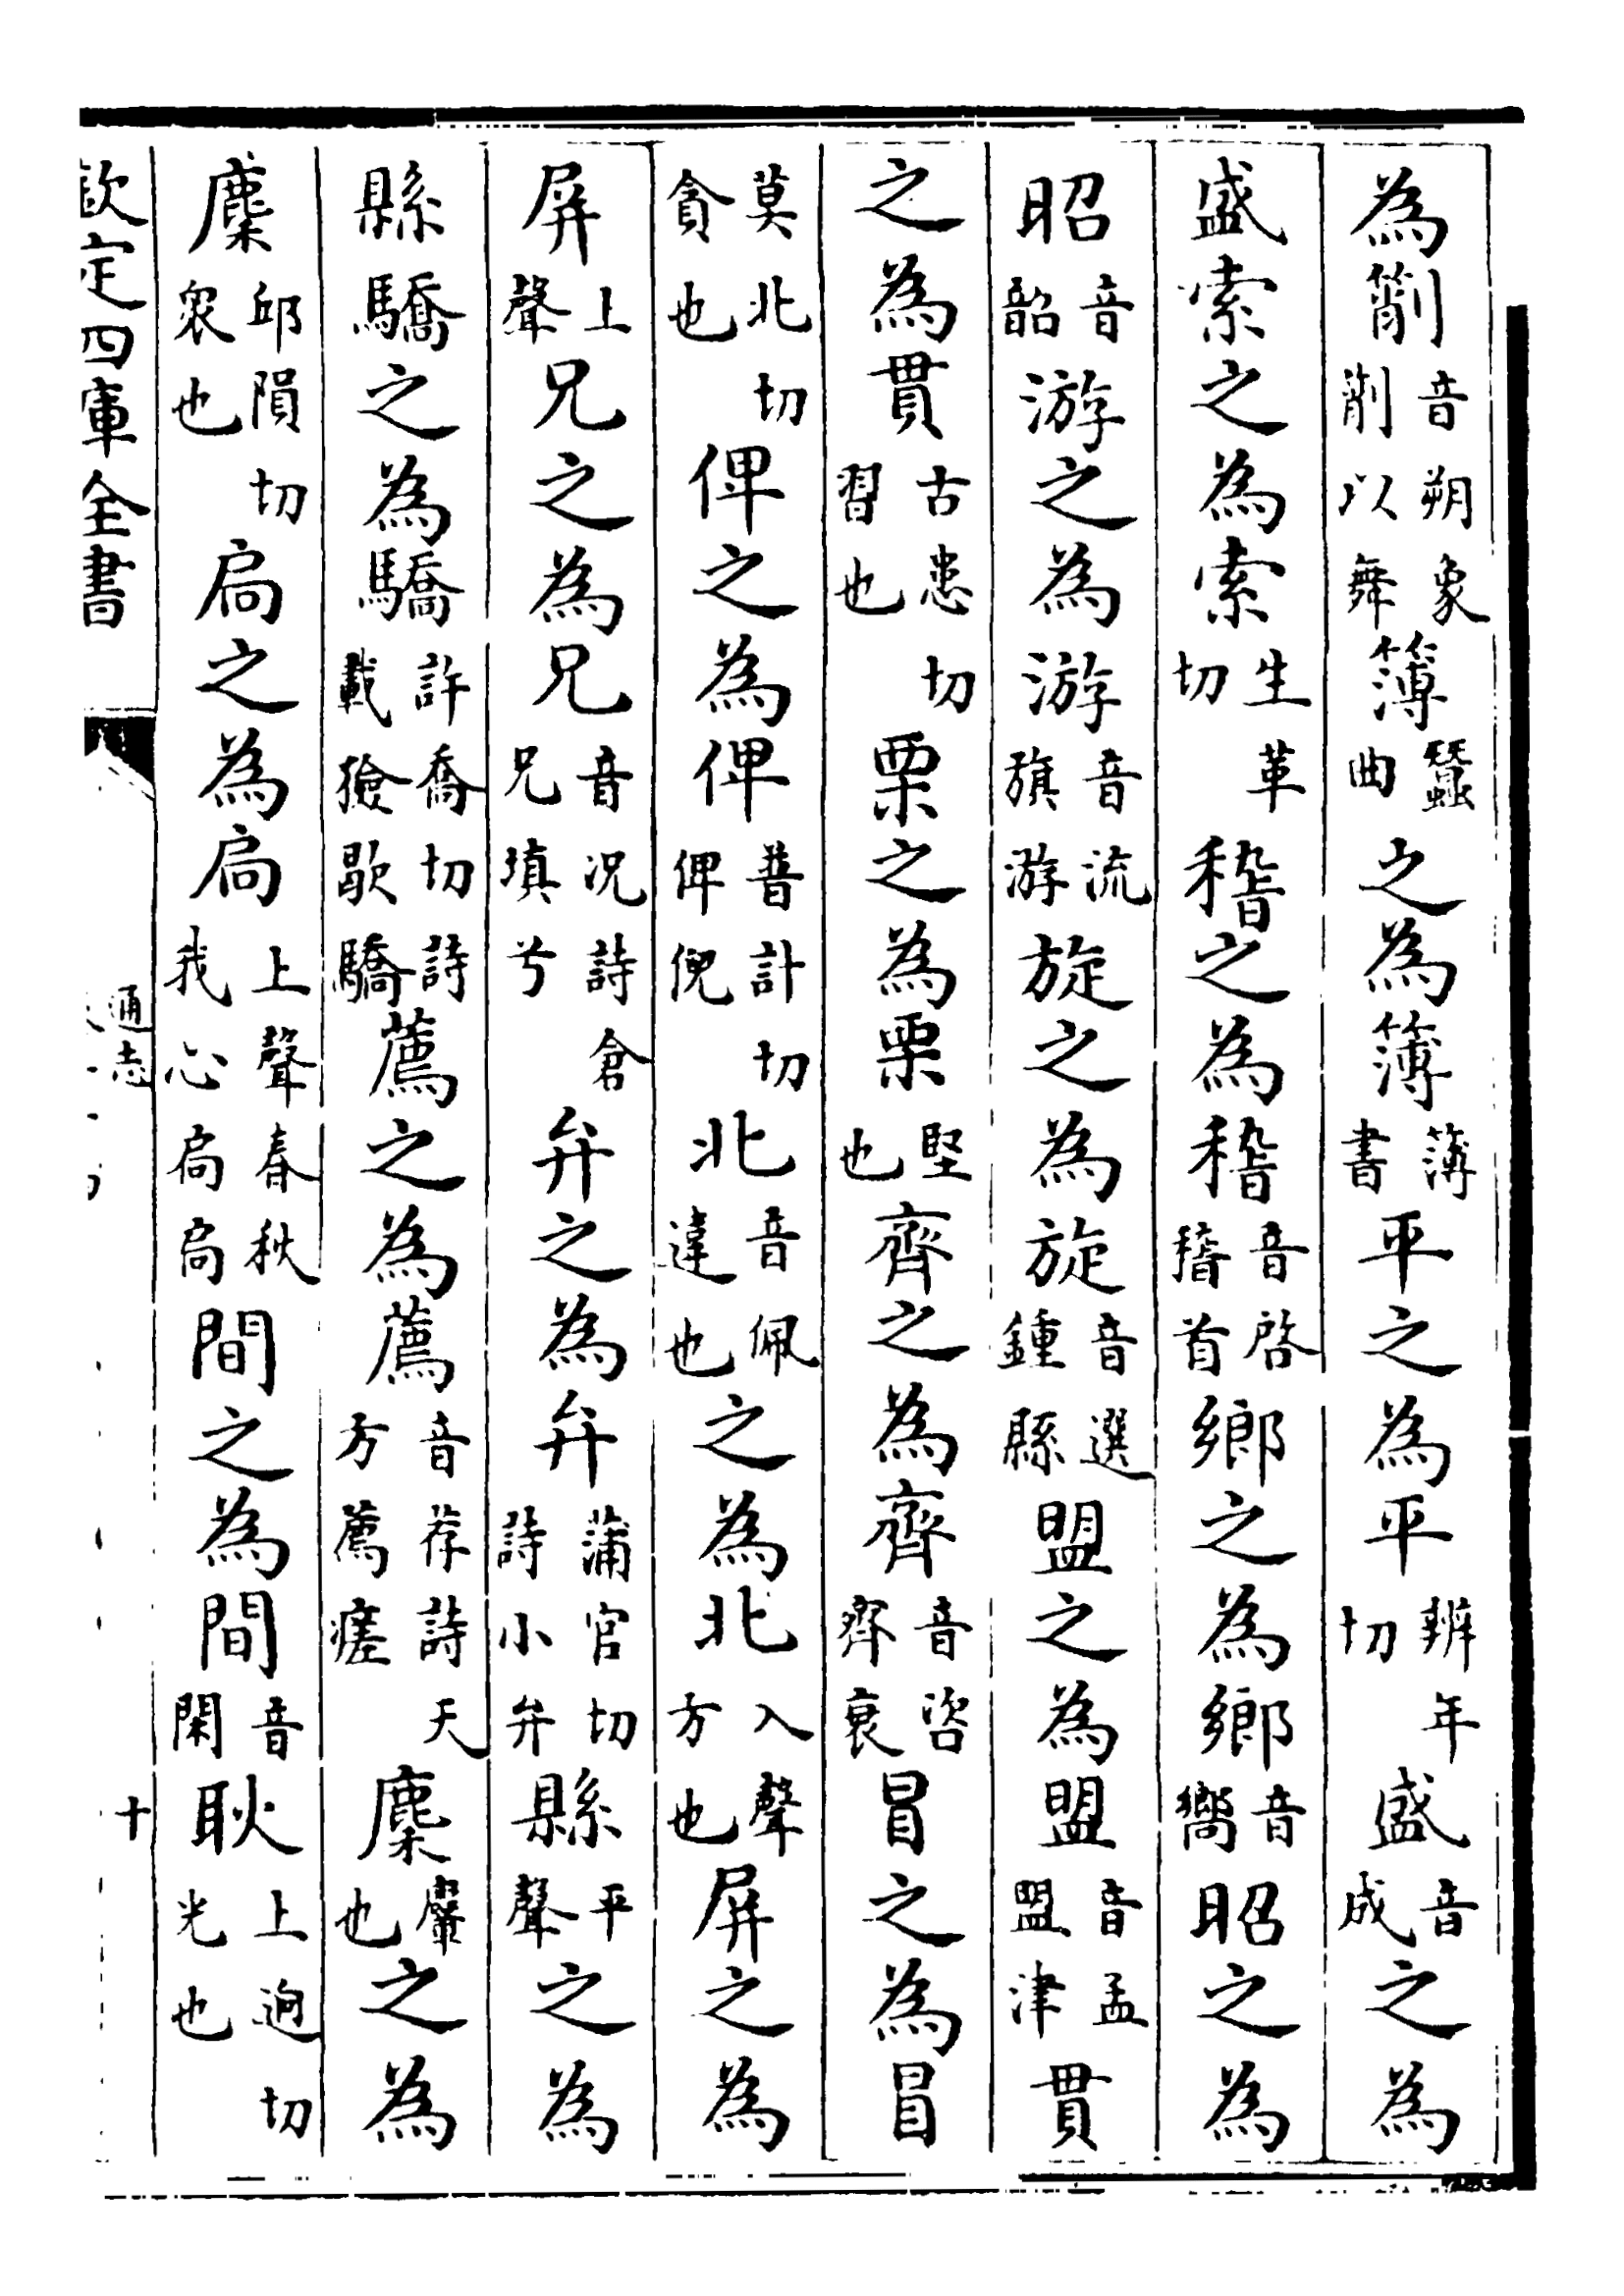 為箾音朔象箾以舞簿蠶曲之為簿簿書平之為平辨年切盛音成之為
盛索之為索生革切稽之為稽音啓䭫首鄉之為鄉音嚮昭之為
昭音韶游之為游音流旗游旋之為旋音選鍾縣盟之為盟音孟盟津貫
之為貫古患切習也栗之為栗堅也齊之為齊音咨齊衰冒之為冒
莫北切貪也俾之為俾普計切俾倪北音佩違也之為北入聲方也屏之為
屏上聲兄之為兄音況詩倉兄填兮弁之為弁蒲官切詩小弁縣平聲之為
縣驕之為驕許喬切詩載獫歇驕薦之為薦音荐詩天方薦瘥麇麏也之為
麇邱隕切衆也扃之為扃上聲春秋我心扃扃間之為間音閑耿上迥切光也
欽定四庫全書
通志
十